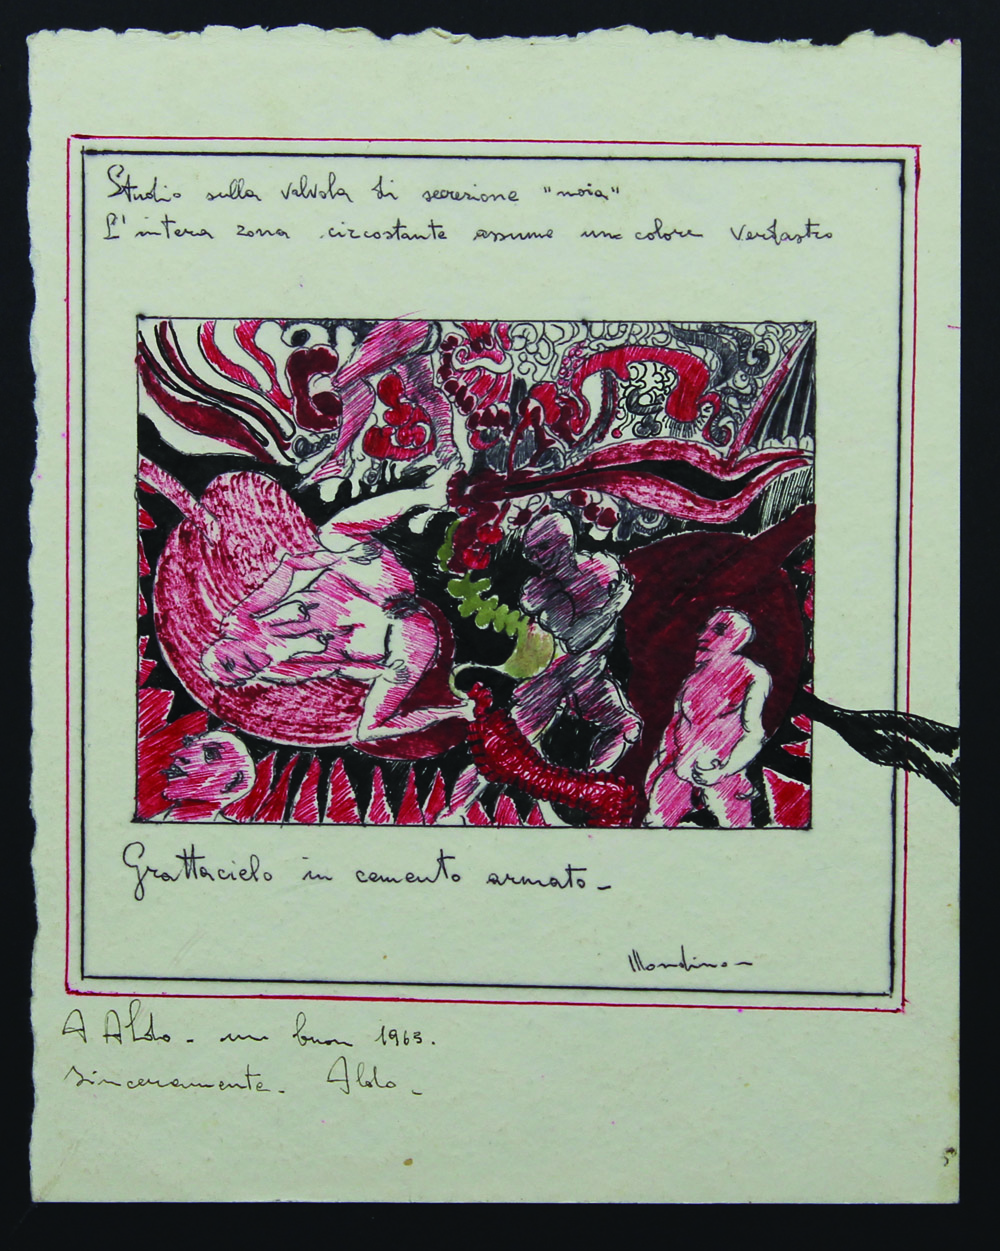 Studio sulla valvola di secrezione "noia"
L'intera zona circostante assume un colore verdastro
Grattacielo in cemento armato -
Mondino -
A Aldo - un buon 1963.
sinceramente - Aldo -